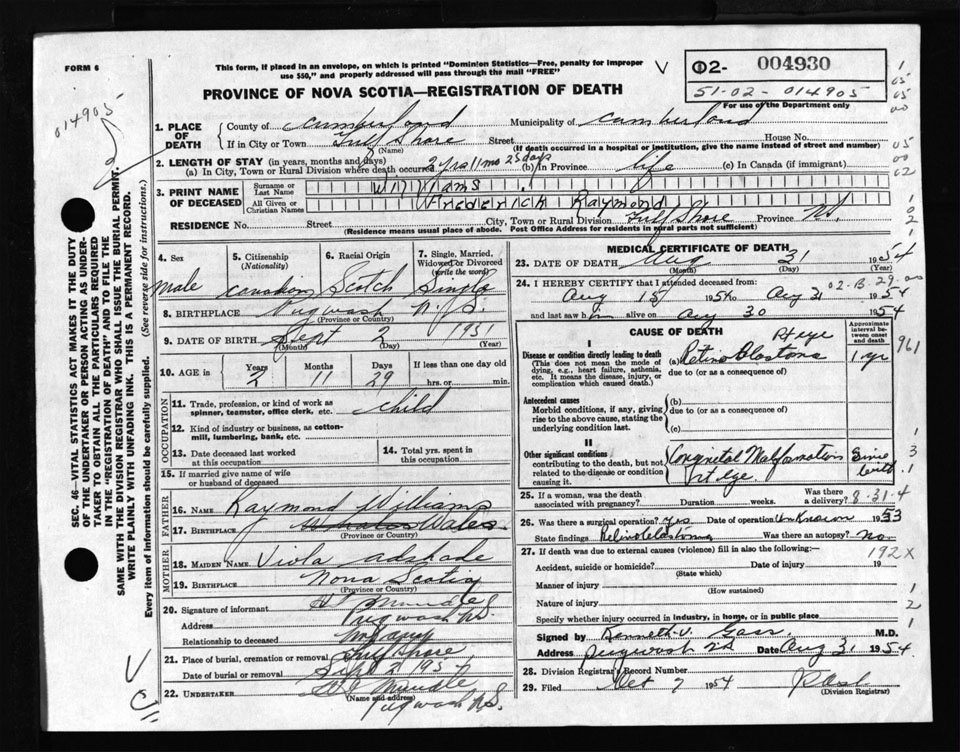 FORM 6
This form, if placed in an envelope, on which is printed "Dominion Statistics—Free, penalty for improper
use $50," and properly addressed will pass through the mail "FREE"
V
Φ2- 004930
51-02-014905
For use of the Department only
014905
PROVINCE OF NOVA SCOTIA—REGISTRATION OF DEATH
1. PLACE OF DEATH
County of Cumberland Municipality of Cumberland
If in City or Town Gulf Shore Street House No.
(Name) (If death occurred in a hospital or institution, give the name instead of street and number)
2. LENGTH OF STAY (in years, months and days)
(a) In City, Town or Rural Division where death occurred 2 yrs 11 mo 25 days (b) In Province life (c) In Canada (if immigrant)
3. PRINT NAME OF DECEASED
Surname or Last Name Williams
All Given or Christian Names Frederick Raymond
RESIDENCE No. Street City, Town or Rural Division Gulf Shore Province NS
(Residence means usual place of abode. Post Office Address for residents in rural parts not sufficient)
4. Sex male
5. Citizenship (Nationality) Canadian
6. Racial Origin Scotch
7. Single, Married, Widowed or Divorced (write the word) Single
8. BIRTHPLACE Pugwash N.S.
(Province or Country)
9. DATE OF BIRTH Sept 2 1951
(Month) (Day) (Year)
10. AGE in Years 2 Months 11 Days 29 If less than one day old hrs. or min.
OCCUPATION
11. Trade, profession, or kind of work as spinner, teamster, office clerk. etc. Child
12. Kind of industry or business, as cotton-mill, lumbering, bank, etc.
13. Date deceased last worked at this occupation
14. Total yrs. spent in this occupation
15. If married give name of wife or husband of deceased
FATHER
16. NAME Raymond Williams
17. BIRTHPLACE Wales
(Province or Country)
MOTHER
18. MAIDEN NAME Viola Adshade
19. BIRTHPLACE Nova Scotia
(Province or Country)
20. Signature of informant
Address Pugwash NS.
Relationship to deceased
21. Place of burial, cremation or removal Gulf Shore
Date of burial or removal Sept 2 195
22. UNDERTAKER Mundle
(Name and address) Pugwash N.S.
MEDICAL CERTIFICATE OF DEATH
23. DATE OF DEATH Aug 31 1954
(Month) (Day) (Year)
24. I HEREBY CERTIFY that I attended deceased from:
02-13-29-00
Aug 15 1954 to Aug 31 1954
and last saw him alive on Aug 30 1954
CAUSE OF DEATH
Approximate interval between onset and death
I
Disease or condition directly leading to death
(This does not mean the mode of dying, e.g., heart failure, asthenia, etc. It means the disease, injury, or complication which caused death.)
Rt eye
(a) Retinoblastoma 1 yr
due to (or as a consequence of)
961
Antecedent causes
Morbid conditions, if any, giving rise to the above cause, stating the underlying condition last.
(b)
due to (or as a consequence of)
(c)
II
Other significant conditions
contributing to the death, but not related to the disease or condition causing it.
Congenital Malformation rt eye. since birth
25. If a woman, was the death associated with pregnancy? Duration weeks. Was there a delivery?
8-31-4
26. Was there a surgical operation? yes Date of operation Unknown 1953
State findings Retinoblastoma Was there an autopsy? no
192X
27. If death was due to external causes (violence) fill in also the following:—
Accident, suicide or homicide? Date of injury 19
(State which)
Manner of injury
(How sustained)
Nature of injury
Specify whether injury occurred in industry, in home, or in public place
Signed by Kenneth V. M.D.
Address Pugwash NS Date Aug 31 1954
28. Division Registrar's Record Number
29. Filed Oct 7 1954
(Division Registrar)
SEC. 46—VITAL STATISTICS ACT MAKES IT THE DUTY
OF THE UNDERTAKER OR PERSON ACTING AS UNDERTAKER TO OBTAIN ALL THE PARTICULARS REQUIRED
IN THE "REGISTRATION OF DEATH" AND TO FILE THE
SAME WITH THE DIVISION REGISTRAR WHO SHALL ISSUE THE BURIAL PERMIT.
WRITE PLAINLY WITH UNFADING INK. THIS IS A PERMANENT RECORD.
Every item of information should be carefully supplied. (See reverse side for instructions.)